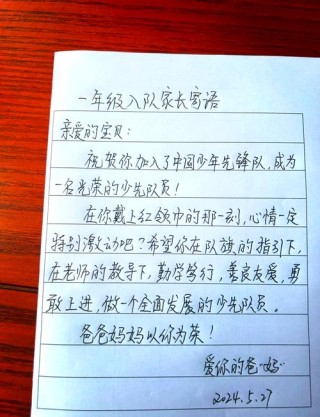 一年级入队家长寄语
亲爱的宝贝：
祝贺你加入了中国少年先锋队，成为
一名光荣的少先队员！
在你戴上红领巾的那一刻，心情一定
特别激动吧？希望你在队旗的指引下，
在老师的教导下，勤学笃行，善良友爱，勇
敢上进，做一个全面发展的少先队员。
爸爸妈妈以你为荣！
爱你的爸妈
2024.5.27